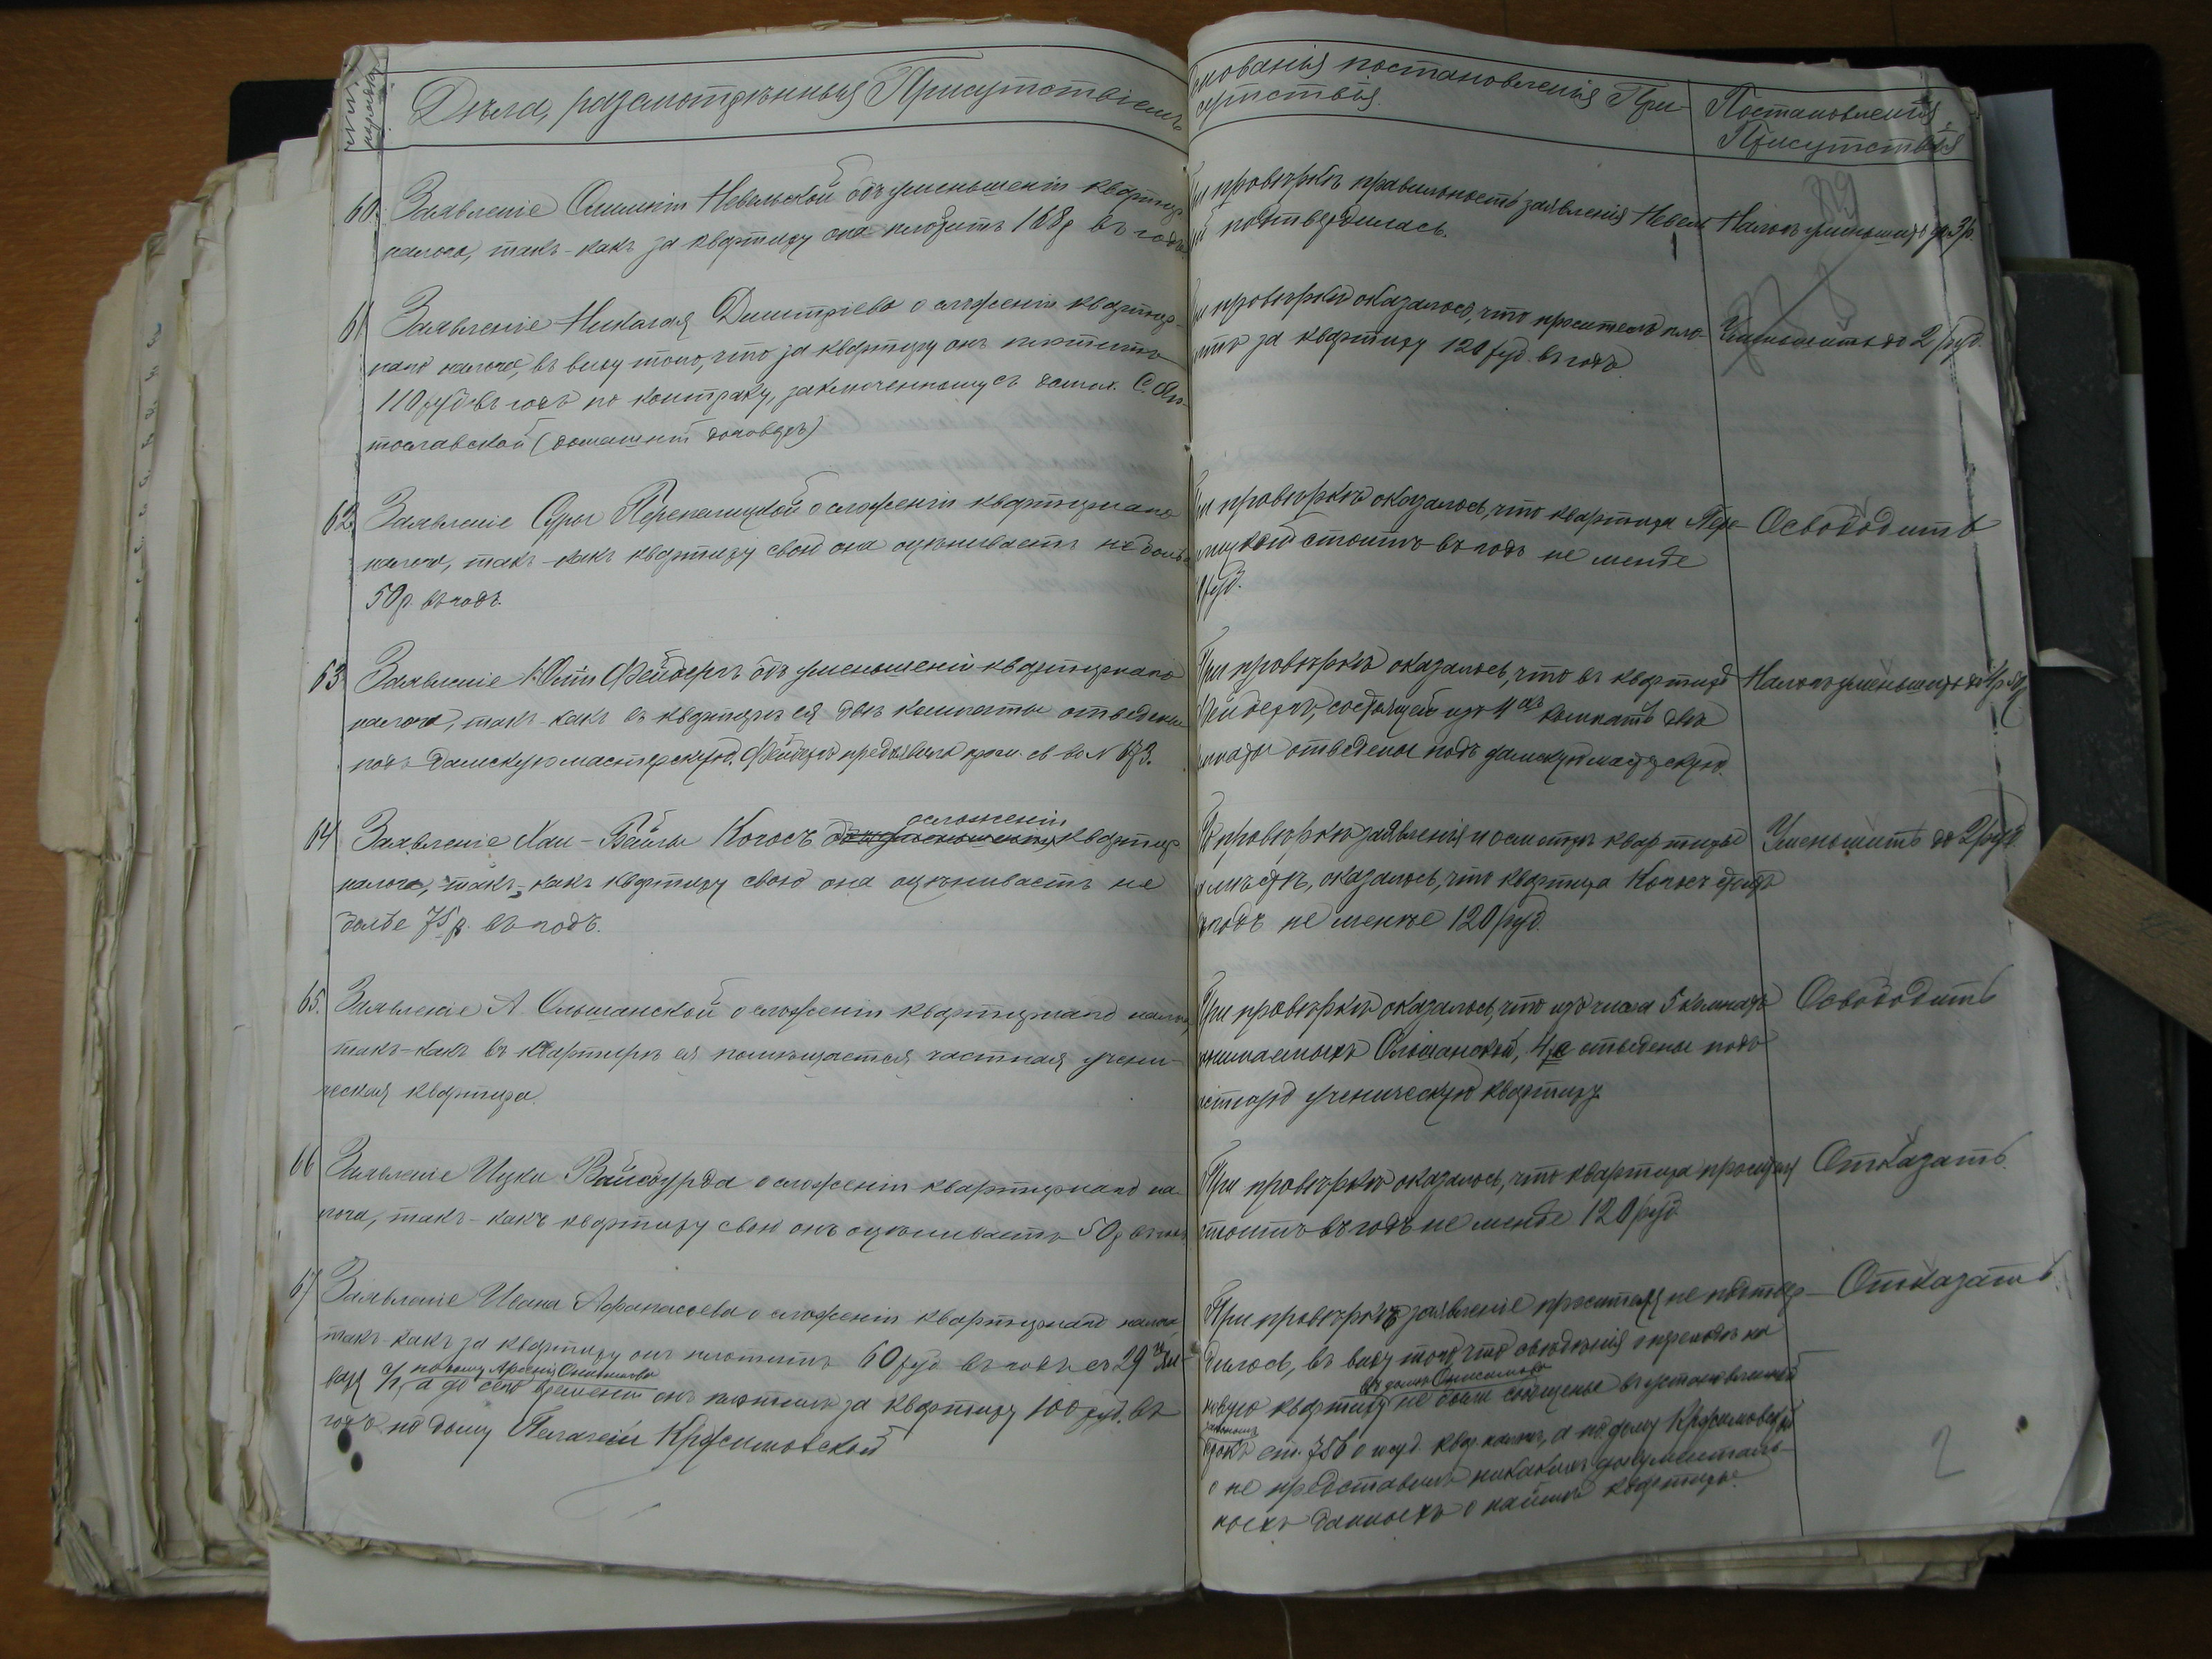 №№ порядка
Дѣла, разсмотрѣнныя Присутствіемъ
60. Заявленіе Олимпіи Невельской объ уменьшеніи квартир.
налога, такъ-какъ за квартиру она платитъ 168 р въ годъ
61 Заявленіе Николая Дмитріева о сложеніи квартир-
наго налога, въ виду того, что за квартиру онъ платитъ
110 руб въ годъ по контракту, заключенному съ домов.
(домашній договоръ)
62. Заявленіе Суры Перепелицкой о сложеніи квартирнаго
налога, такъ-какъ квартиру свою она оцѣниваетъ не
50 р. въ годъ.
63 Заявленіе Фейбергъ объ уменьшеніи квартирнаго
налога, такъ-какъ въ квартирѣ ея двѣ комнаты отведены
подъ дамскую мастерскую. Фейбергъ пром. св-во № 673.
64 Заявленіе Хаи-Бейлы Когосъ о сложеніи квартир
налога, такъ-какъ квартиру свою она оцѣниваетъ не
болѣе 75 р. въ годъ.
65. Заявленіе А. Ольшанской о сложеніи квартирнаго
такъ-какъ въ квартирѣ ея помѣщается частная учени-
ческая квартира.
66 Заявленіе Ицки Вайсбурда о сложеніи квартирнаго на
лога, такъ-какъ квартиру свою онъ оцѣниваетъ 50 р въ
67 Заявленіе Ивана Афанасьева о сложеніи квартирнаго налога
такъ-какъ за квартиру онъ платитъ 60 руб въ годъ съ 29 го
по дому Арсенія Онисимова
а до сего времени онъ платилъ за квартиру 100 руб. въ
годъ по дому Пелагеи
нованія постановленія При-
сутствія.
ри провѣркѣ правильность заявленія Невель
й подтвердилась.
ри провѣркѣ оказалось, что проситель пла-
итъ за квартиру 120 руб. въ годъ.
ри провѣркѣ оказалось, что квартира Пере-
лицкой стоитъ въ годъ не менѣе
руб.
При провѣркѣ оказалось, что въ квартирѣ
Фейбергъ, состоящей изъ 4 комнатъ двѣ
мнаты отведены подъ дамскую мастерскую.
провѣркѣ заявленія и осмотрѣ квартиры
а мѣстѣ, оказалось, что квартира Когосъ стоитъ
въ годъ не менѣе 120 руб.
При провѣркѣ оказалось, что изъ числа 5 комнатъ
занимаемыхъ Ольшанской, 4 отведены подъ
ученическую квартиру.
При провѣркѣ оказалось, что квартира просителя
стоитъ въ годъ не менѣе 120 руб
При провѣркѣ заявленіе просителя не подтвер-
дилось, въ виду того, что свѣдѣнія о переходѣ на
въ домъ Онисимова
новую квартиру не были сообщены въ установленный
закономъ
срокъ ст. о квар налогѣ, а по дому
о не представилъ никакихъ документаль-
ныхъ данныхъ о наймѣ квартиры.
Постановленія
Присутствія
Налогъ уменьшить до 3 р.
Уменьшить до 2 руб.
Освободить
Налогъ уменьшить до
Уменьшить до 2 руб
Освободить
Отказать.
Отказать
2